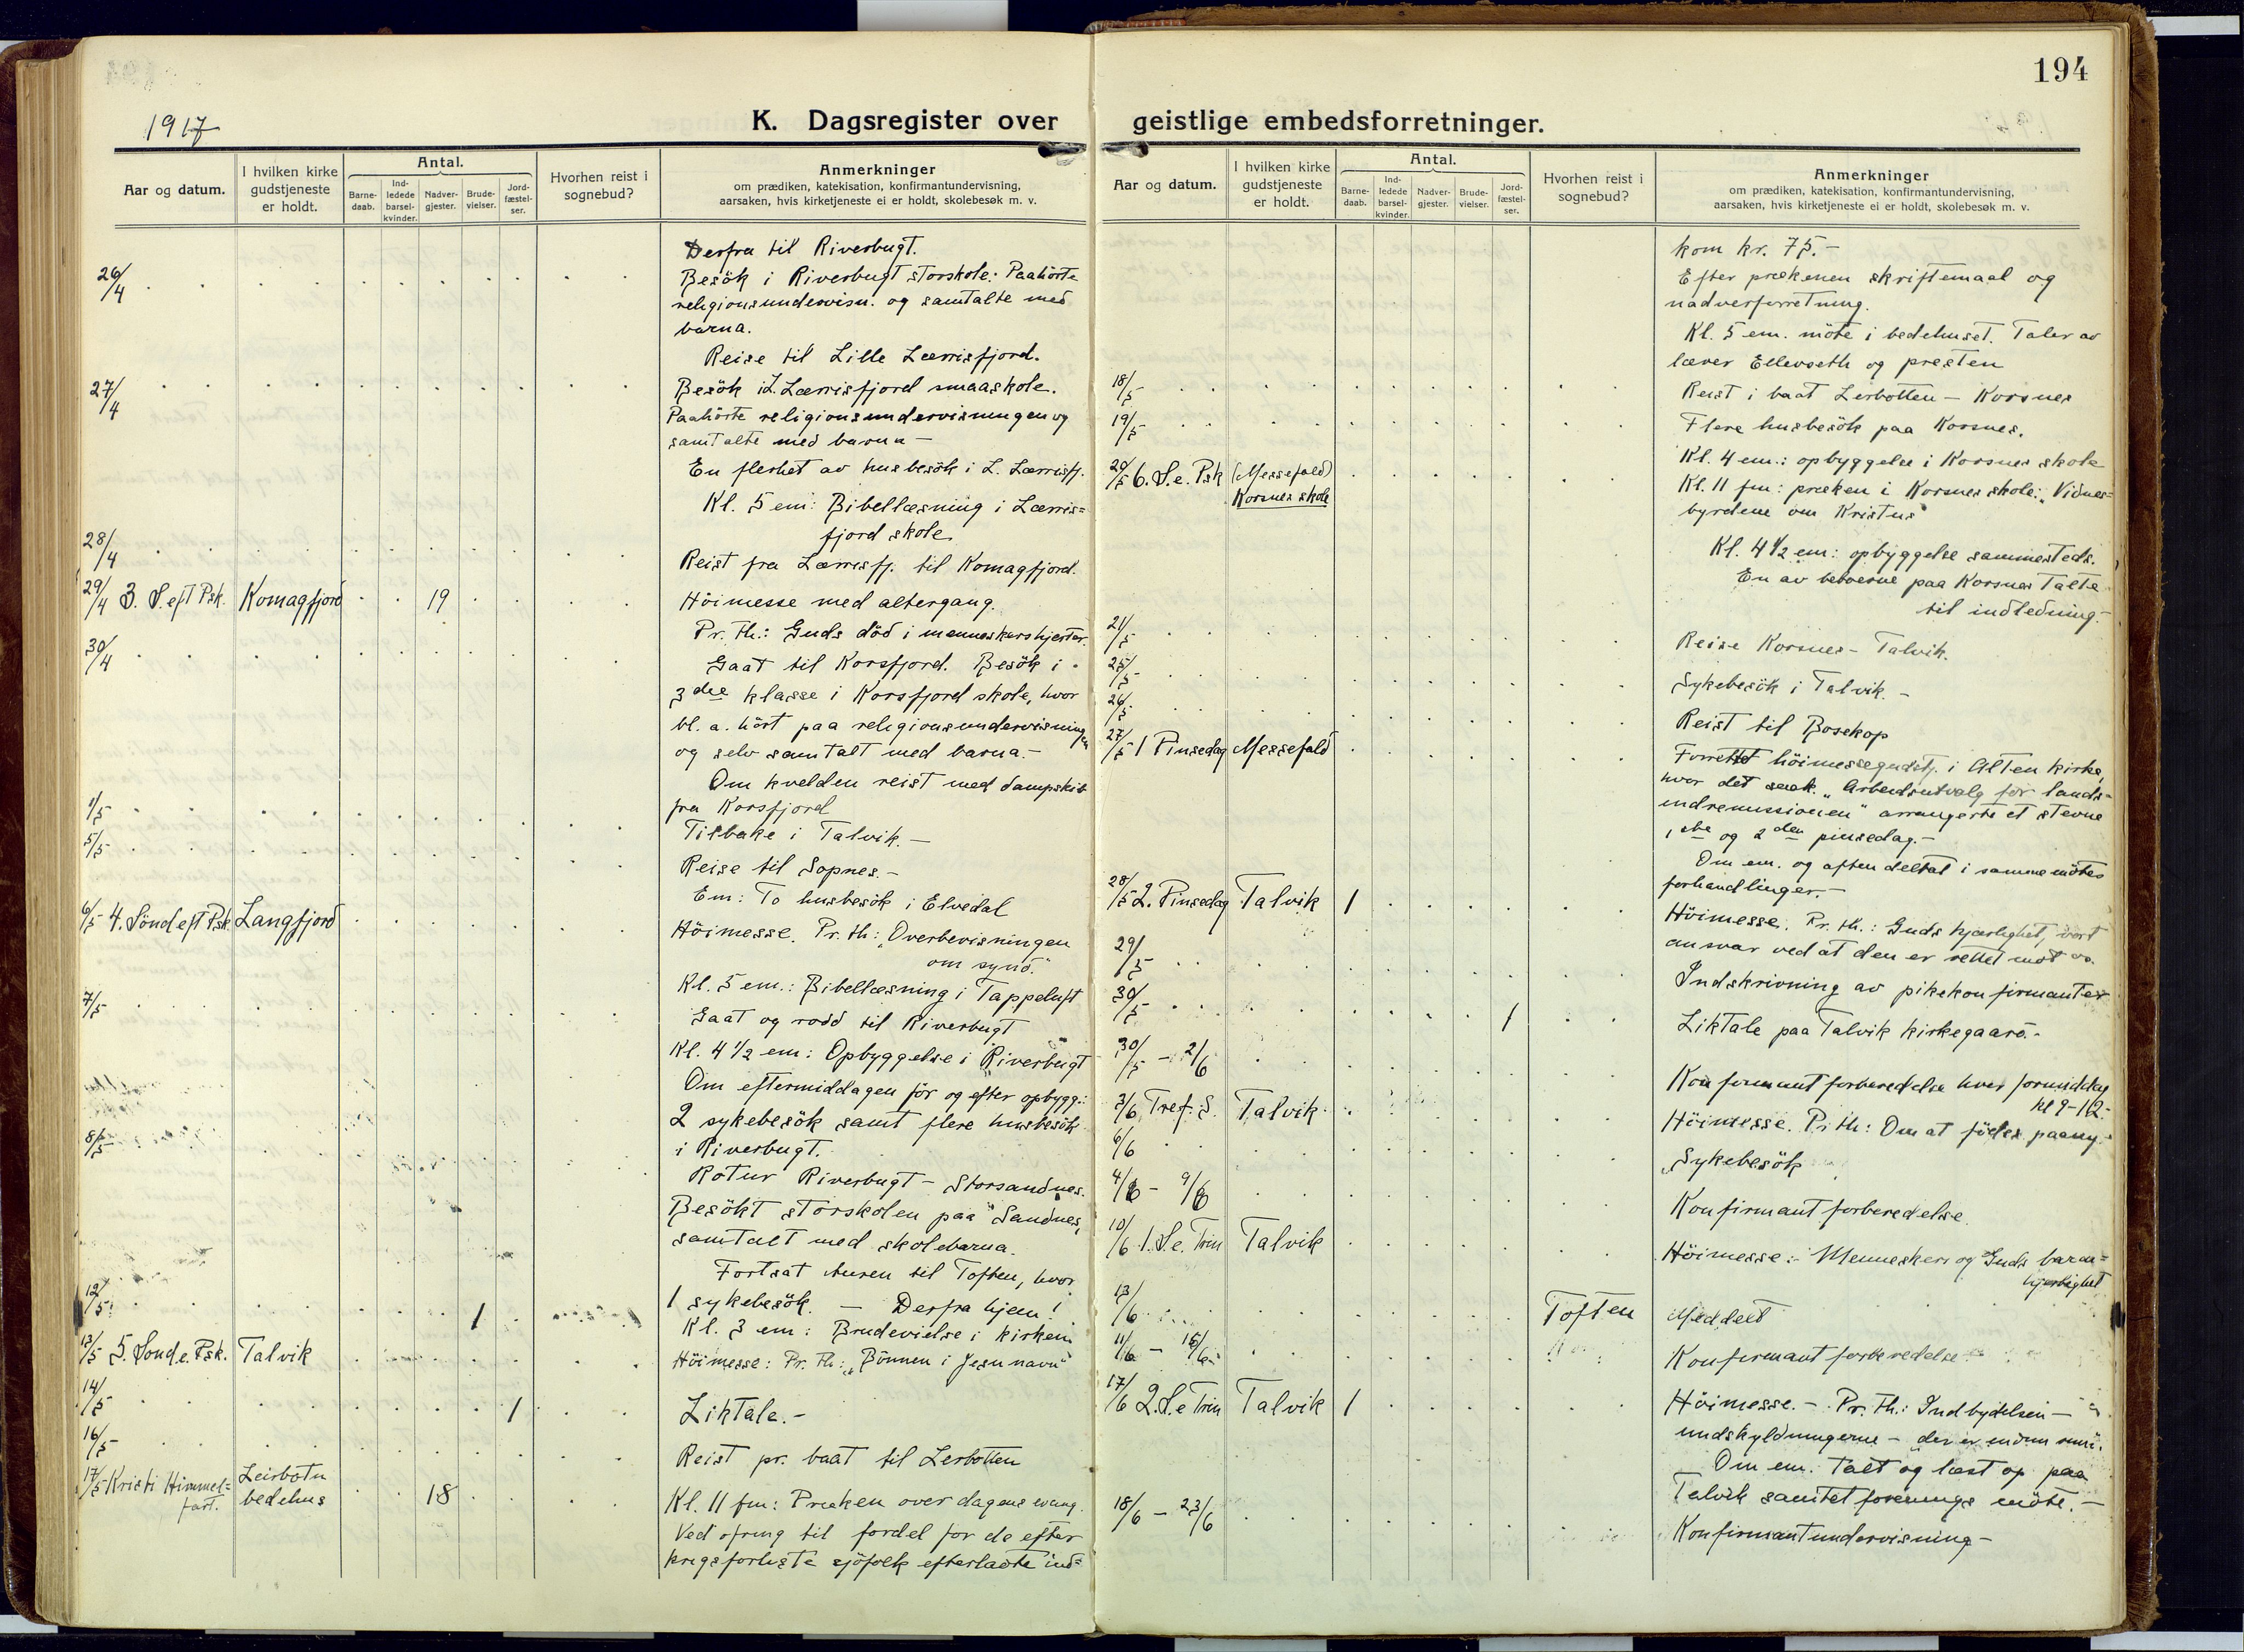 194
1917
K. Dagsregister over geistlige embedsforretninger.
Aar og datum.
I hvilken kirke gudstjeneste er holdt.
Antal.
Barne-daab.
Ind-ledede barsel-kvinder.
Nadver-gjester.
Brude-vielser.
Jord-fæstel-ser.
Hvorhen reist i sognebud?
Anmerkninger
om prædiken, katekisation, konfirmantundervisning,
aarsaken, hvis kirketjeneste ei er holdt, skolebesøk m. v.
Derfra til Riverbugt.
26/4 Besök i Riverbugt storskole: Paahörte
religionsundervisn. og samtalte med
barna.
Reise til Lille Lærrisfjord.
27/4 Besök i L. Lærrisfjord smaaskole.
Paahörte religionsundervisningen og
samtalte med barna —
En flerhet av husbesök i L. Lærrisfj.
Kl. 5 em: Bibellæsning i Lærris=
fjord skole
28/4 Reist fra Lærrisfj. til Komagfjord.
29/4 3. S. eft Psk. Komagfjord 19 Höimesse med altergang.
Pr. Th.: Guds död i menneskers hjerter.
30/4 Gaat til Korsfjord. Besök i
3die klasse i Korsfjord skole, hvor
bl. a. hört paa religionsundervisningen
og selv samtalt med barna. —
Om kvelden reist med dampskib
fra Korsfjord
1/5 Tilbake i Talvik. —
5/5 Reise til Sopnes. —
Em: To husbesök i Elvedal
6/5 4. Sönd eft Psk. Langfjord Höimesse. Pr. th: "Overbevisningen
om synd."
Kl. 5 em.: Bibellæsning i Tappeluft
7/5 Gaat og rodd til Riverbugt
Kl. 4 1/2 em: Opbyggelse i Riverbugt
Om eftermiddagen för og efter opbygg.:
2 sykebesök samt flere husbesök
i Riverbugt.
8/5 Rotur Riverbugt — Storsandnes.
Besökt storskolen paa Sandnes,
samtalt med skolebarna.
Fortsat turen til Toften, hvor
1 sykebesök. — Derfra hjem!
12/5 1 Kl. 3 em: Brudevielse i kirken
13/5 5. Sönd e. Psk. Talvik Höimesse: Pr. Th: "Bönnen i Jesu navn"
14/5 1 Liktale. —
16/5 Reist pr. baat til Lerbotten
17/5 Kristi Himmel=
fart. Leirbotn
bedehus 18 Kl. 11 fm: Præken over dagens evang.
Ved ofring til fordel for de efter
krigsforliste sjöfolk efterladte ind=
Aar og datum.
I hvilken kirke gudstjeneste er holdt.
Antal.
Barne-daab.
Ind-ledede barsel-kvinder.
Nadver-gjester.
Brude-vielser.
Jord-fæstel-ser.
Hvorhen reist i sognebud?
Anmerkninger
om prædiken, katekisation, konfirmantundervisning,
aarsaken, hvis kirketjeneste ei er holdt, skolebesøk m. v.
kom kr. 75. —
Efter prækenen skriftemaal og
nadverforretning.
Kl. 5 em. möte i bedehuset. Taler av
lærer Ellevseth og presten
18/5 Reist i baat Lerbotten — Korsnes
19/5 Flere husbesök paa Korsnes.
Kl. 4 em.: opbyggelse i Korsnes skole
20/5 6. S. e. Psk (Messefald)
Korsnes skole Kl. 11 fm: præken i Korsnes skole: "Vidnes=
byrdene om Kristus"
Kl. 4 1/2 em: opbyggelse sammesteds.
En av beboerne paa Korsnes talte
til indledning. —
21/5 Reise Korsnes — Talvik.
25/5 Sykebesök i Talvik. —
26/5 Reist til Bosekop
27/5 1 Pinsedag Messefald Forrettet höimessegudstj. i Alten kirke,
hvor det "Arbeidsutvalg for lands=
indremissionen" arrangerte et stevne
1ste og 2den pinsedag. —
Om em. og aften deltat i samme mötes
forhandlinger. —
28/5 2. Pinsedag Talvik 1 Höimesse. Pr. th.: Guds kjærlighet, vort
ansvar ved at den er rettet mot os.
29/5 Indskrivning av pikekonfirmanter
30/5 1 Liktale paa Talvik kirkegaard. —
30/5 — 2/6 Konfirmantforberedelse hver formiddag
kl 9—12.
3/6 Tref. S. Talvik Höimesse. Pr. th: Om at födes paany.
6/6 Sykebesök
4/6 — 9/6 Konfirmantforberedelse.
10/6 1. S. e. Trin Talvik Höimesse: — Mennesken og Guds barm=
hjertighet
13/6 Toften Meddelt
11/6 — 16/6 Konfirmantforberedelse
17/6 2. S. e Trin Talvik 1 Höimesse. — Pr. Th.: Indbydelsen —
undskyldningerne —
Om em. talt og læst op paa
Talvik samtetforenings möte. —
18/6 — 23/6 Konfirmantundervisning —